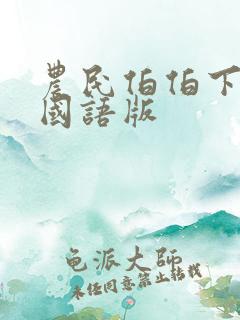 農民伯伯下
國語版
龟派大师
未经同意禁止转载